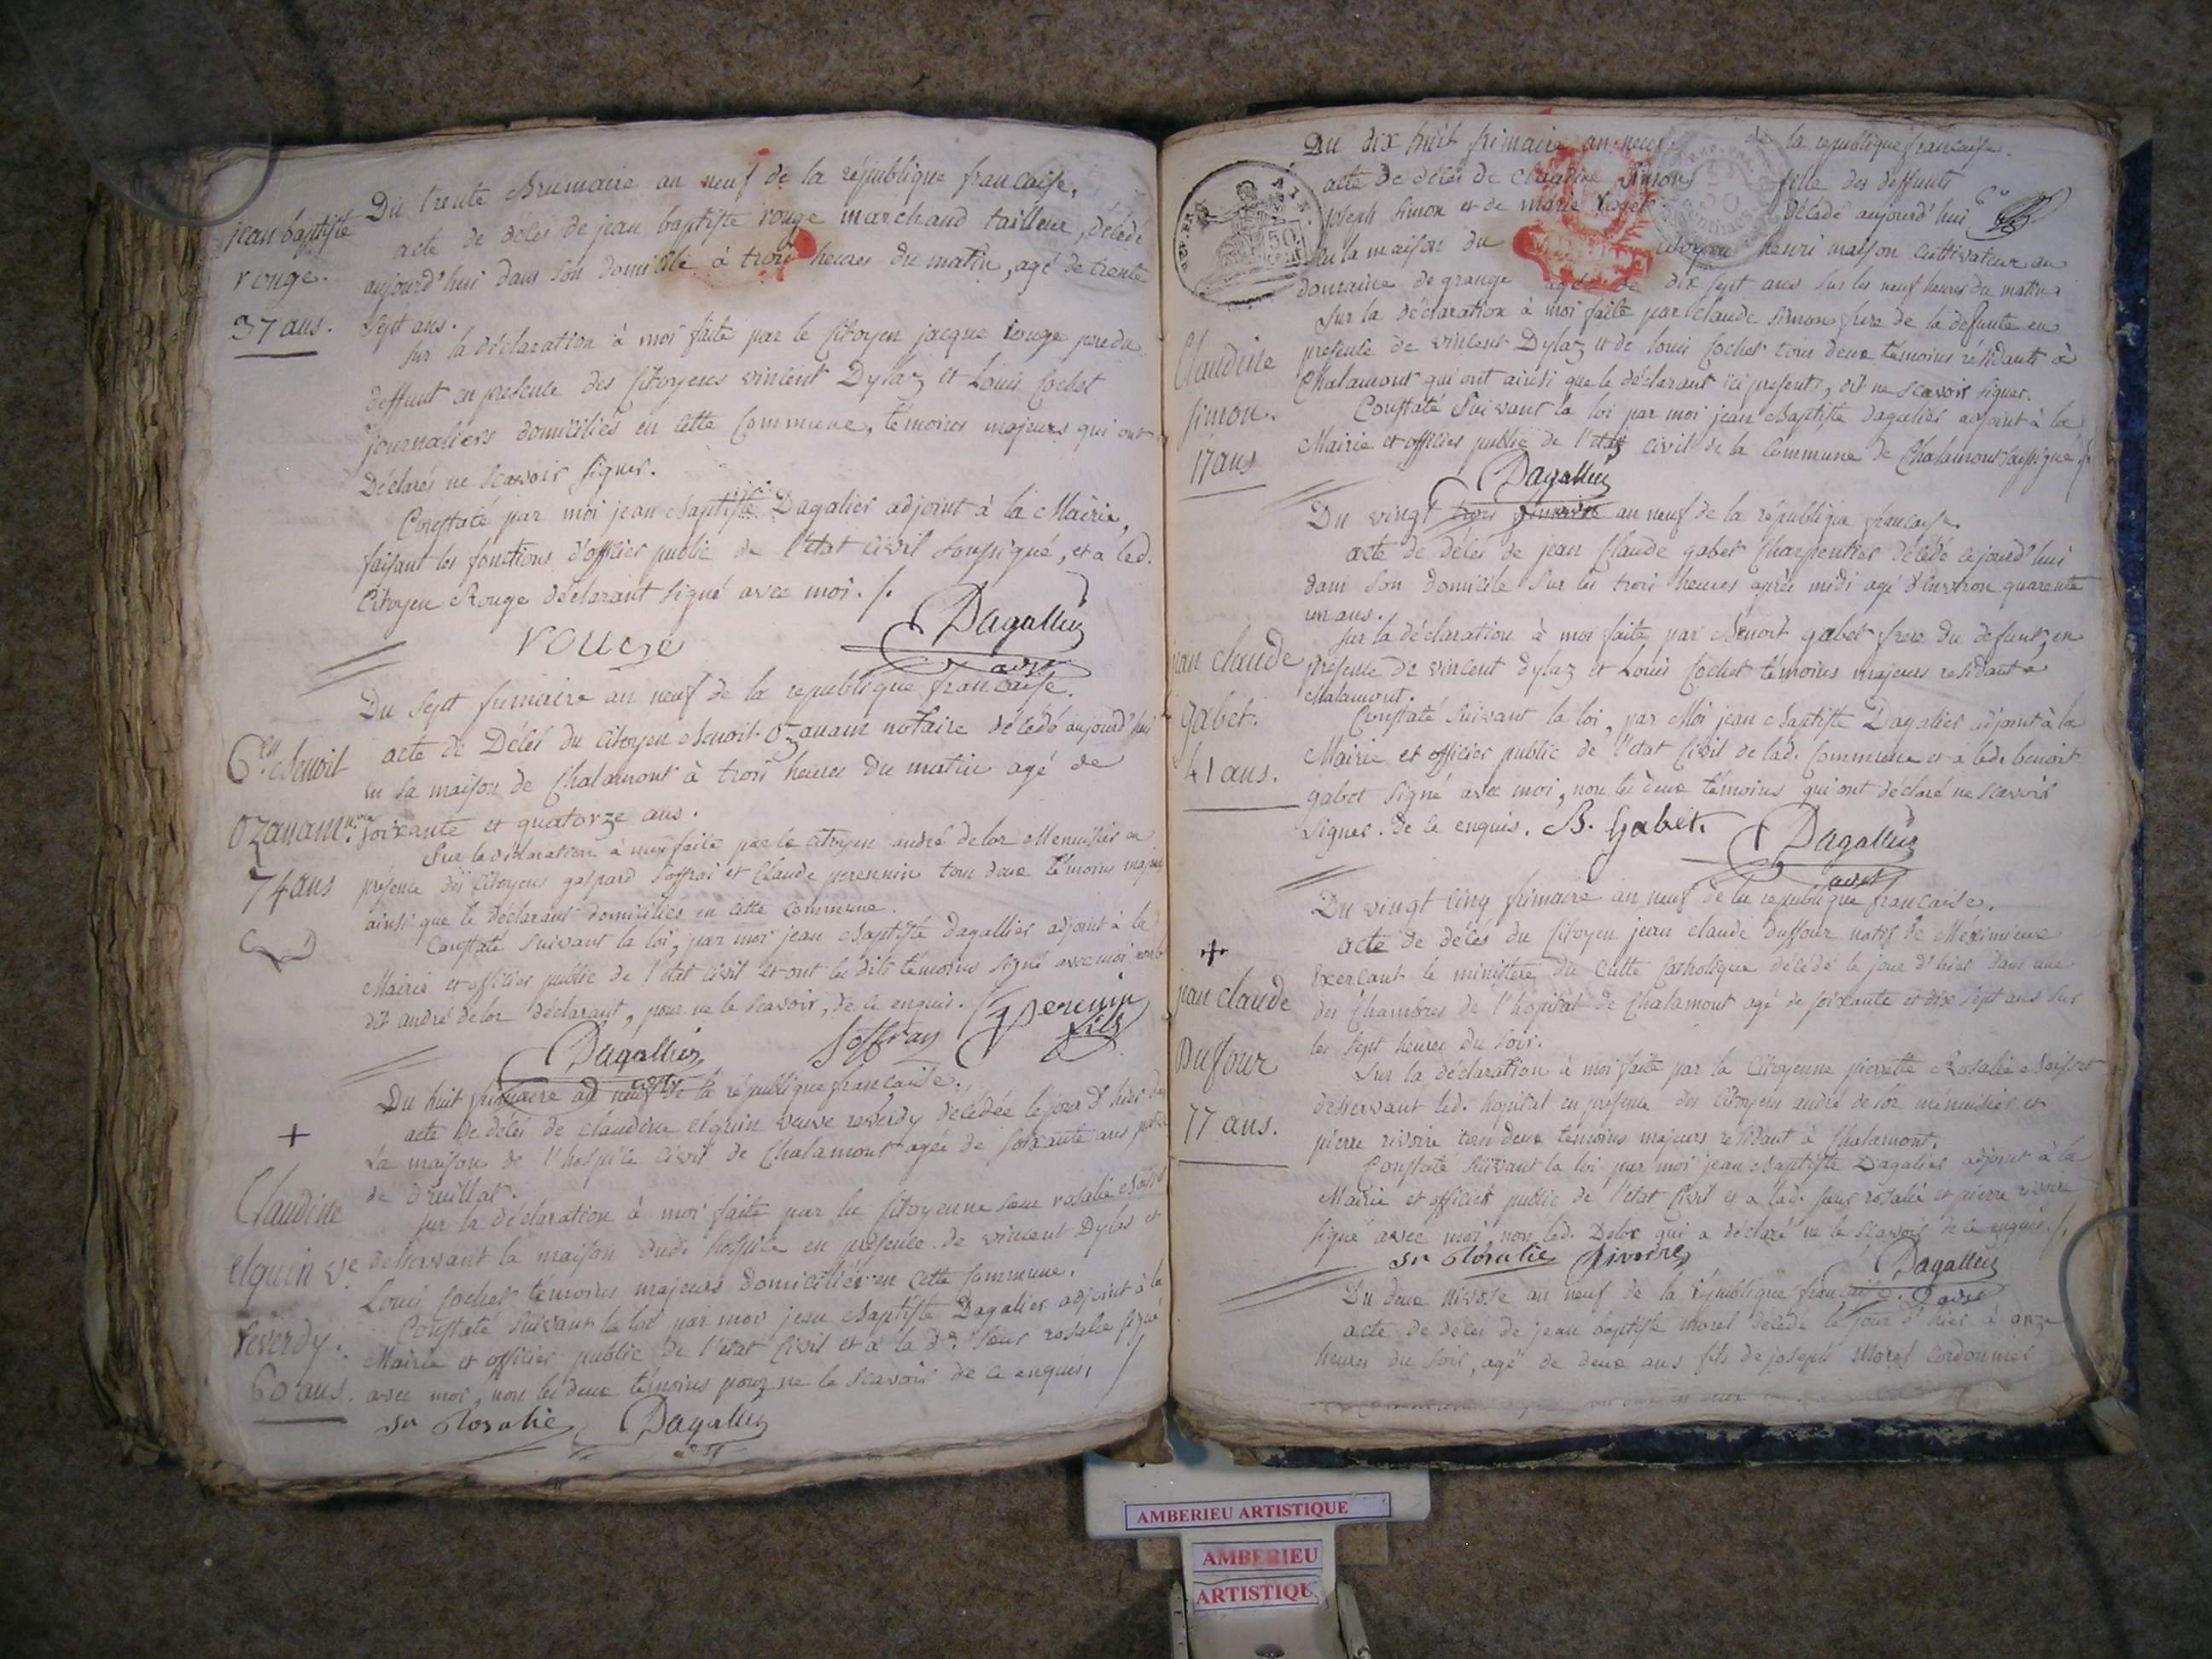 jean baptiste
rouge.
37 ans.
Du trente Brumaire an neuf de la république francaise,
acte de déces de jean baptiste rouge marchand tailleur, décédé
aujourd'hui dans son domicile à trois heures du matin, agé de trente
sept ans.
sur la déclaration à moi faite par le Citoyen jacque rouge pere du
deffunt en presence des Citoyens vincent Dylaz et Louis Cochet
journaliers domiciliés en cette Commune, témoins majeurs qui ont
Déclarés ne scavoir signer.
Constaté par moi jean Baptiste Dagalier adjoint à la Mairie,
faisant les fonctions d'officier public de l'etat civil soussigné, et a led.
Citoyen Rouge déclarant signé avec moi ./.
rouge Dagallier
adjt
C.en Benoit
Ozanam n.re
74 ans
Du sept frimaire an neuf de la republique francaise.
acte de Décés du Citoyen Benoit Ozanam notaire décédé aujourd'hui
en sa maison de Chalamont à trois heures du matin agé de
soixante et quatorze ans.
Sur la déclaration à moi faite par le Citoyen andré delor Menuisier en
présence des Citoyens gaspard Soffrai et Claude perennin tous deux témoins majeurs
ainsi que le déclarant domiciliés en cette commune.
Constaté suivant la loi, par moi jean Baptiste Dagallier adjoint à la
Mairie et officier public de l'etat civil et ont les dits témoins signé avec moi non le
dit andré delor déclarant, pour ne le scavoir, de ce enquis.
Dagallier Soffray perenin
fils
adjt
+
Claudine
elguin ve
reverdy.
60 ans.
Du huit frimaire an neuf de la république francaise.
acte de décés de claudine elguin veuve reverdy décédée le jour d'hier dans
la maison de l'hospice civil de Chalamont agée de soixante ans
de Druillat.
sur la déclaration à moi faite par la Citoyenne soeur rosalie
desservant la maison dud. hospice en présence de vincent Dylas et
Louis Cochet témoins majeurs domiciliés en cette commune.
Constaté suivant la loi par moi jean Baptiste Dagalier adjoint à la
Mairie et officier public de l'etat civil et à la de. soeur rosalie signé
avec moi, non les deux témoins pour ne le scavoir de ce enquis,
sr Rosalie Dagallier
adjt
Du dix huit frimaire an neuf de la republique francaise.
acte de déces de Claudine Simon fille des deffunts
joseph Simon et de marie décédé aujourd'hui
en la maison du citoyen henri maison cultivateur au
domaine de grange agée de dix sept ans sur les neuf heures du matin
Claudine
Simon.
17 ans
Sur la déclaration à moi faite par Claude Simon frere de la defunte en
presence de vincent Dylaz et de louis Cochet tous deux témoins résidants à
Chalamont qui ont ainsi que le déclarant ici présents, dit ne scavoir signer.
Constaté Suivant la loi par moi jean Baptiste dagalier adjoint à la
Mairie et officier public de l'etat civil de la Commune de Chalamont soussigné ./.
Dagallier
Du vingt trois frimaire an neuf de la république francaise.
acte de déces de jean Claude gabet Charpentier décédé cejourd'hui
dans son domicile sur les trois heures après midi agé d'environ quarente
un ans.
jean claude
gabet.
41 ans.
Sur la déclaration à moi faite par Benoit gabet frere du defunt, en
présence de vincent dylaz et Louis Cochet témoins majeurs residant a
chalamont.
Constaté suivant la loi, par Moi jean Baptiste Dagalier adjoint à la
Mairie et officier public de l'etat Civil de lad. Commune et a led. benoit
gabet signé avec moi, non les deux témoins qui ont déclaré ne scavoir
signer. de ce enquis. B. Gabet. Dagallier
adjt
Du vingt cinq frimaire an neuf de la république francaise.
+
jean claude
Duffour
77 ans.
acte de décés du Citoyen jean claude Duffour natif de Méximieux
Exercant le ministere du culte Catholique décédé le jour d'hier dans une
des Chambres de l'hopital de Chalamont agé de soixante et dix sept ans sur
les sept heures du soir.
Sur la déclaration à moi faite par la Citoyenne pierrette Rosalie
desservant led. hopital en présence des Citoyens andré delor ménuisier et
pierre rivoire tous deux témoins majeurs résidant à Chalamont.
Constaté suivant la loi par moi jean Baptiste Dagalier adjoint à la
Mairie et officier public de l'etat Civil et a lad. soeur rosalie et pierre rivoire
signé avec moi, non led. Delor qui a déclaré ne le scavoir de ce enquis ./.
sr Rosalie Rivoire Dagallier
adjt
Du deux nivose an neuf de la république francaise.
acte de décés de jean baptiste morel décédé le jour d'hier à onze
heures du soir, agé de deux ans fils de joseph Morel cordonnier
AMBERIEU ARTISTIQUE
AMBERIEU
ARTISTIQU